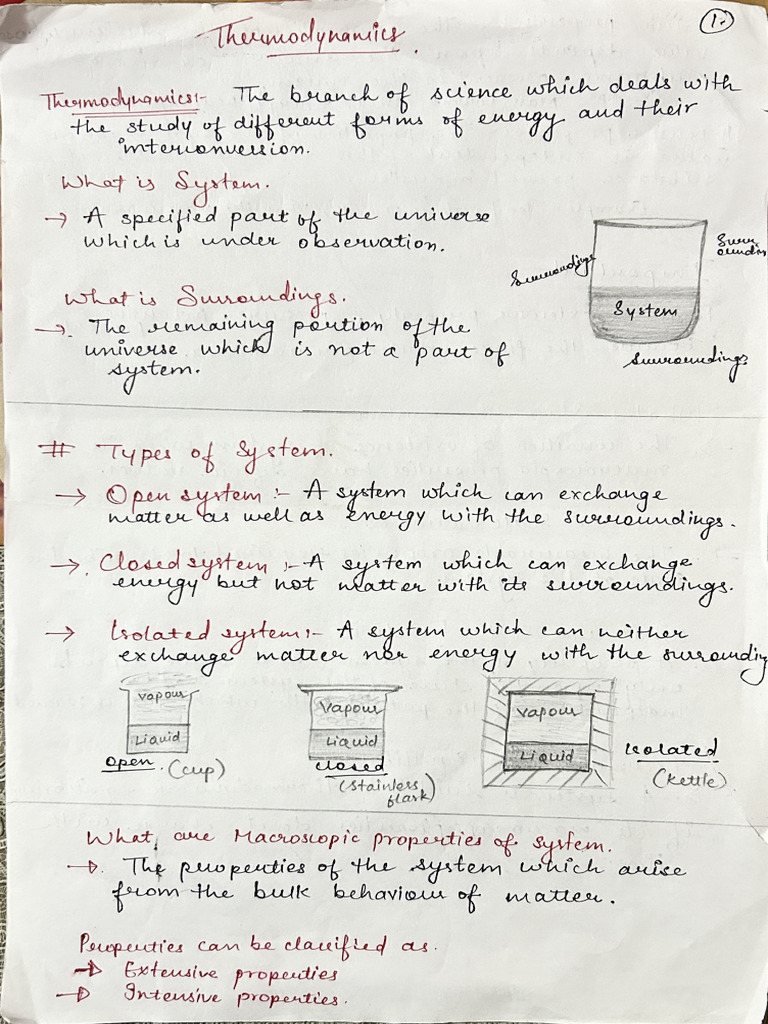 1.
Thermodynamics.
Thermodynamics:- The branch of science which deals with
the study of different forms of energy and their
interconversion.
What is System.
→ A specified part of the universe
which is under observation.
Surroundings
Surr-
oundings
System
Surroundings
What is Surroundings.
→. The remaining portion of the
universe which is not a part of
system.
# Types of System.
→ Open system :- A system which can exchange
matter as well as energy with the surroundings.
→. Closed system :- A system which can exchange
energy but not matter with its surroundings.
→ Isolated system:- A system which can neither
exchange matter nor energy with the surrounding
Vapour
Liquid
Open. (cup)
Vapour
Liquid
Closed
(Stainless
flask)
Vapour
Liquid
Isolated
(Kettle)
What are Macroscopic properties of system.
→. The properties of the system which arise
from the bulk behaviour of matter.
Properties can be classified as.
→ Extensive properties
→ Intensive properties.